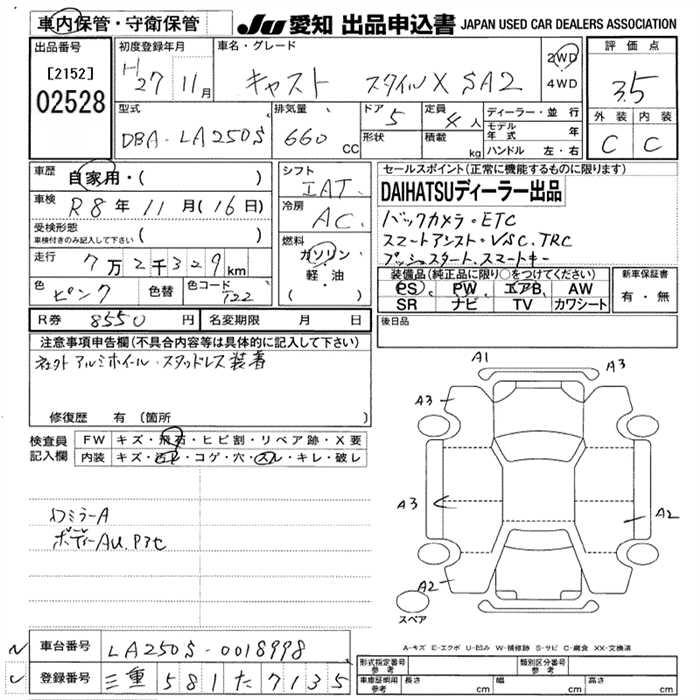 車内保管・守衛保管
JU 愛知 出品申込書 JAPAN USED CAR DEALERS ASSOCIATION
出品番号
[2152]
02528
初度登録年月
H 27 11月
車名・グレード
キャスト スタイルX SA2
2WD
4WD
評価点
3.5
外装 内装
C C
型式
DBA-LA250S
排気量
660 cc
ドア 5
形状
定員 4人
積載 kg
ディーラー・並行
モデル年式 年
ハンドル 左・右
車歴 自家用・( )
車検 R8年 11月(16日)
受検形態
車検付きのみ記入して下さい ( )
走行 7万2千329km
色 ピンク 色替 色コード T22
シフト IAT
冷房 AC
燃料
ガソリン
軽・油
( )
セールスポイント(正常に機能するものに限ります)
DAIHATSUディーラー出品
バックカメラ・ETC
スマートアシスト・VSC.TRC
プッシュスタート.スマートキー
装備品(純正品に限り○をつけてください)
PS PW エアB AW
SR ナビ TV カワシート
新車保証書
有・無
R券 8550円 名変期限 月 日
後日品
注意事項申告欄(不具合内容等は具体的に記入して下さい)
社外アルミホイール・スタッドレス装着
修復歴 有(箇所 )
検査員記入欄
FW キズ・飛石・ヒビ割・リペア跡・X要
内装 キズ・汚れ・コゲ・穴・スレ・キレ・破レ
ミラーA
ボデーAU.
A1
A3
A3
A3
A2
A2
スペア
A-キズ E-エクボ U-凹み W-補修跡 S-サビ C-腐食 XX-交換済
車台番号 LA250S-0018998
登録番号 三重 581た7135
形式指定番号 参考
類別区分番号 参考
車庫証明用 参考 長さ cm 幅 cm 高さ cm